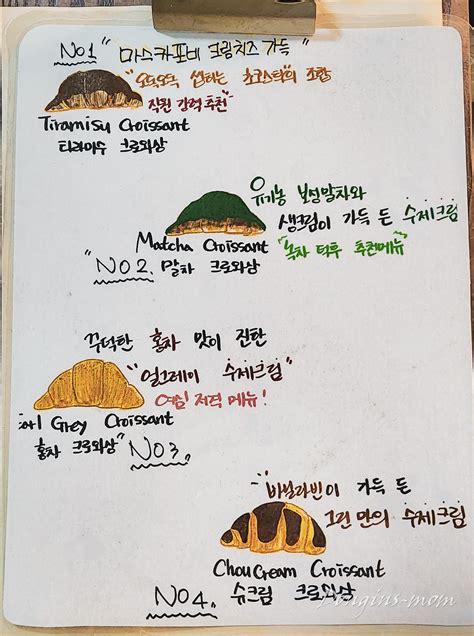 NO1 " 마스카포네 크림치즈 가득
"오독오독 씹히는 초코스틱의 조합
직원 강력 추천"
Tiramisu Croissant
티라미수 크로와상
유기농 보성말차와
생크림이 가득 든 수제크림
"녹차 덕후 추천메뉴"
Matcha Croissant
"NO2. 말차 크로와상
꾸덕한 홍차 맛이 진한
"얼그레이 수제크림"
여심 저격 메뉴!
Earl Grey Croissant
홍차 크로와상" NO3.
"바닐라빈이 가득 든
그린만의 수제크림
Chou Cream Croissant
슈크림 크로와상
NO4.
Pingins-mom